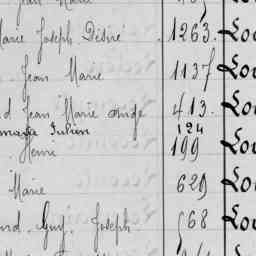 Marie Joseph Désiré 1263 Lo
Jean Marie 1137 Lo
d Jean Marie ange 413 Lo
Julien 124
Henri 199 Lo
Marie 629 Lo
nd Guy Joseph 568 Lo